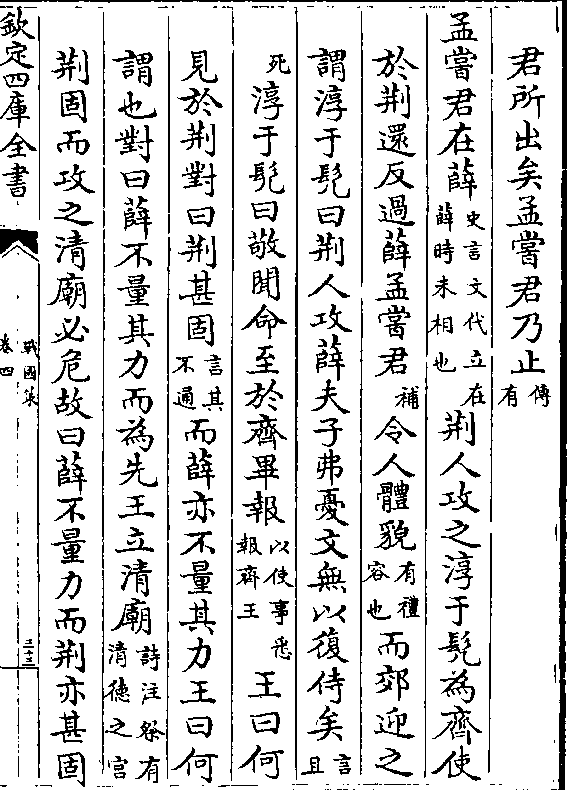 君所出矣孟嘗君乃止傳有
孟嘗君在薛史言文代立在薛時未相也荆人攻之淳于髡為齊使
於荆還反過薛孟嘗君補令人體貌有禮容也而郊迎之
謂淳于髡曰荆人攻薛夫子弗憂文無以復侍矣言且
死淳于髡曰敬聞命至於齊畢報以使事悉報齊王王曰何
見於荆對曰荆甚固言其不通而薛亦不量其力王曰何
謂也對曰薛不量其力而為先王立清廟詩注祭有清德之宫
荆固而攻之清廟必危故曰薛不量力而荆亦甚固
欽定四庫全書
戰國策
卷四
二十三